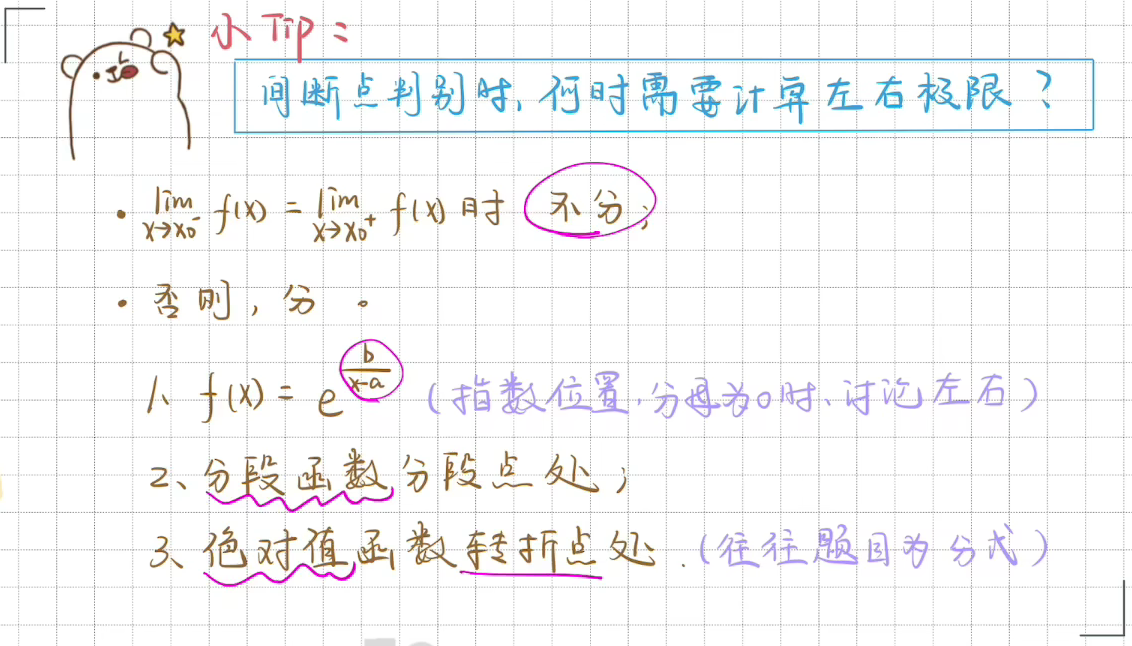 小Tip：
间断点判别时，何时需要计算左右极限？
· lim x→x₀⁻ f(x) = lim x→x₀⁺ f(x) 时 不分；
· 否则，分 。
1、f(x) = e^(b/(x-a)) （指数位置，分母为0时、讨论左右）
2、分段函数分段点处；
3、绝对值函数转折点处.（往往题目为分式）